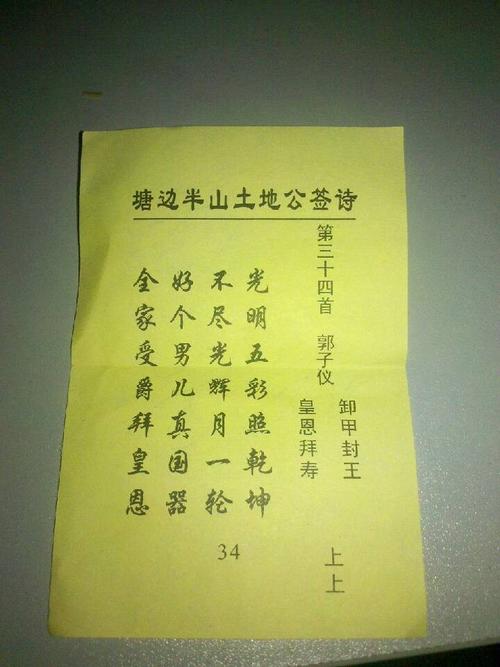 塘边半山土地公签诗
第三十四首 郭子仪
卸甲封王
皇恩拜寿
上上
光明五彩照乾坤
不尽光辉月一轮
好个男儿真国器
全家受爵拜皇恩
34